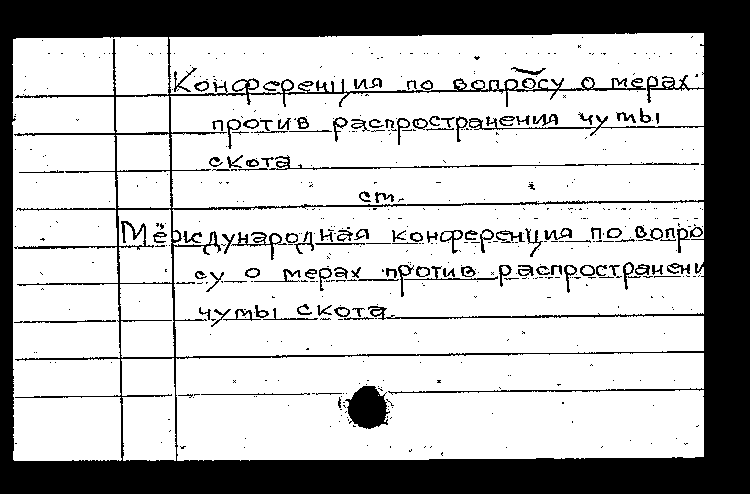 Конференция по вопросу о мерах
против распространения чумы
скота.
ст.
Международная конференция по вопро
су о мерах против распространени
чумы скота.